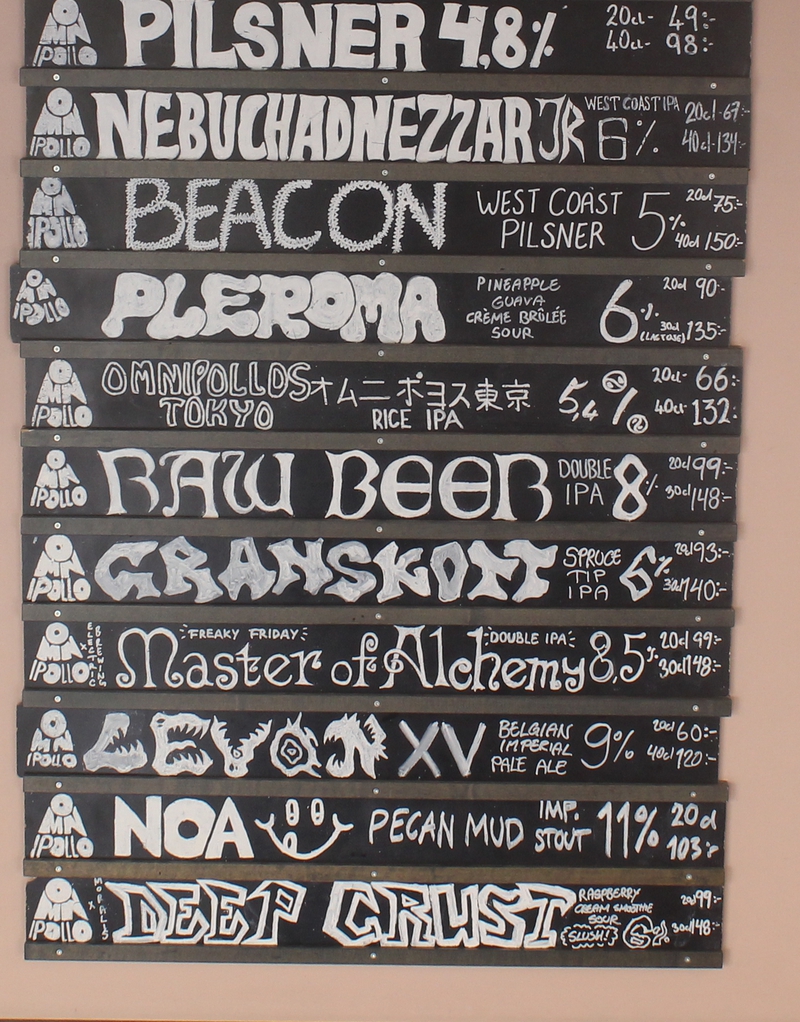 OMNIPOLLO PILSNER 4,8% 20cl- 49:-
40cl- 98:-
OMNIPOLLO NEBUCHADNEZZAR JR WEST COAST IPA 6% 20cl-67:-
40cl-134:-
OMNIPOLLO BEACON WEST COAST PILSNER 5% 20cl 75:-
40cl 150:-
OMNIPOLLO PLEROMA PINEAPPLE
GUAVA
CRÈME BRÛLÉE
SOUR
6% (LACTOSE) 20cl 90:-
30cl 135:-
OMNIPOLLO OMNIPOLLOS
TOKYO
オムニポヨス東京
RICE IPA
5,4% 20cl- 66:-
40cl- 132:-
OMNIPOLLO RAW BEER DOUBLE
IPA
8% 20cl 99:-
30cl 148:-
OMNIPOLLO GRANSKOTT SPRUCE
TIP
IPA
6% 20cl 93:-
30cl 140:-
OMNIPOLLO x ELECTRIC BREWING
FREAKY FRIDAY DOUBLE IPA
Master of Alchemy 8,5% 20cl 99:-
30cl 148:-
OMNIPOLLO LEVON XV BELGIAN
IMPERIAL
PALE ALE
9% 20cl 60:-
40cl 120:-
OMNIPOLLO NOA PECAN MUD IMP.
STOUT
11% 20cl
103:-
OMNIPOLLO x MORALIS
DEEP CRUST RASPBERRY
CREAM SMOOTHIE
SOUR
SLUSH!
6% 20cl 99:-
30cl 148:-